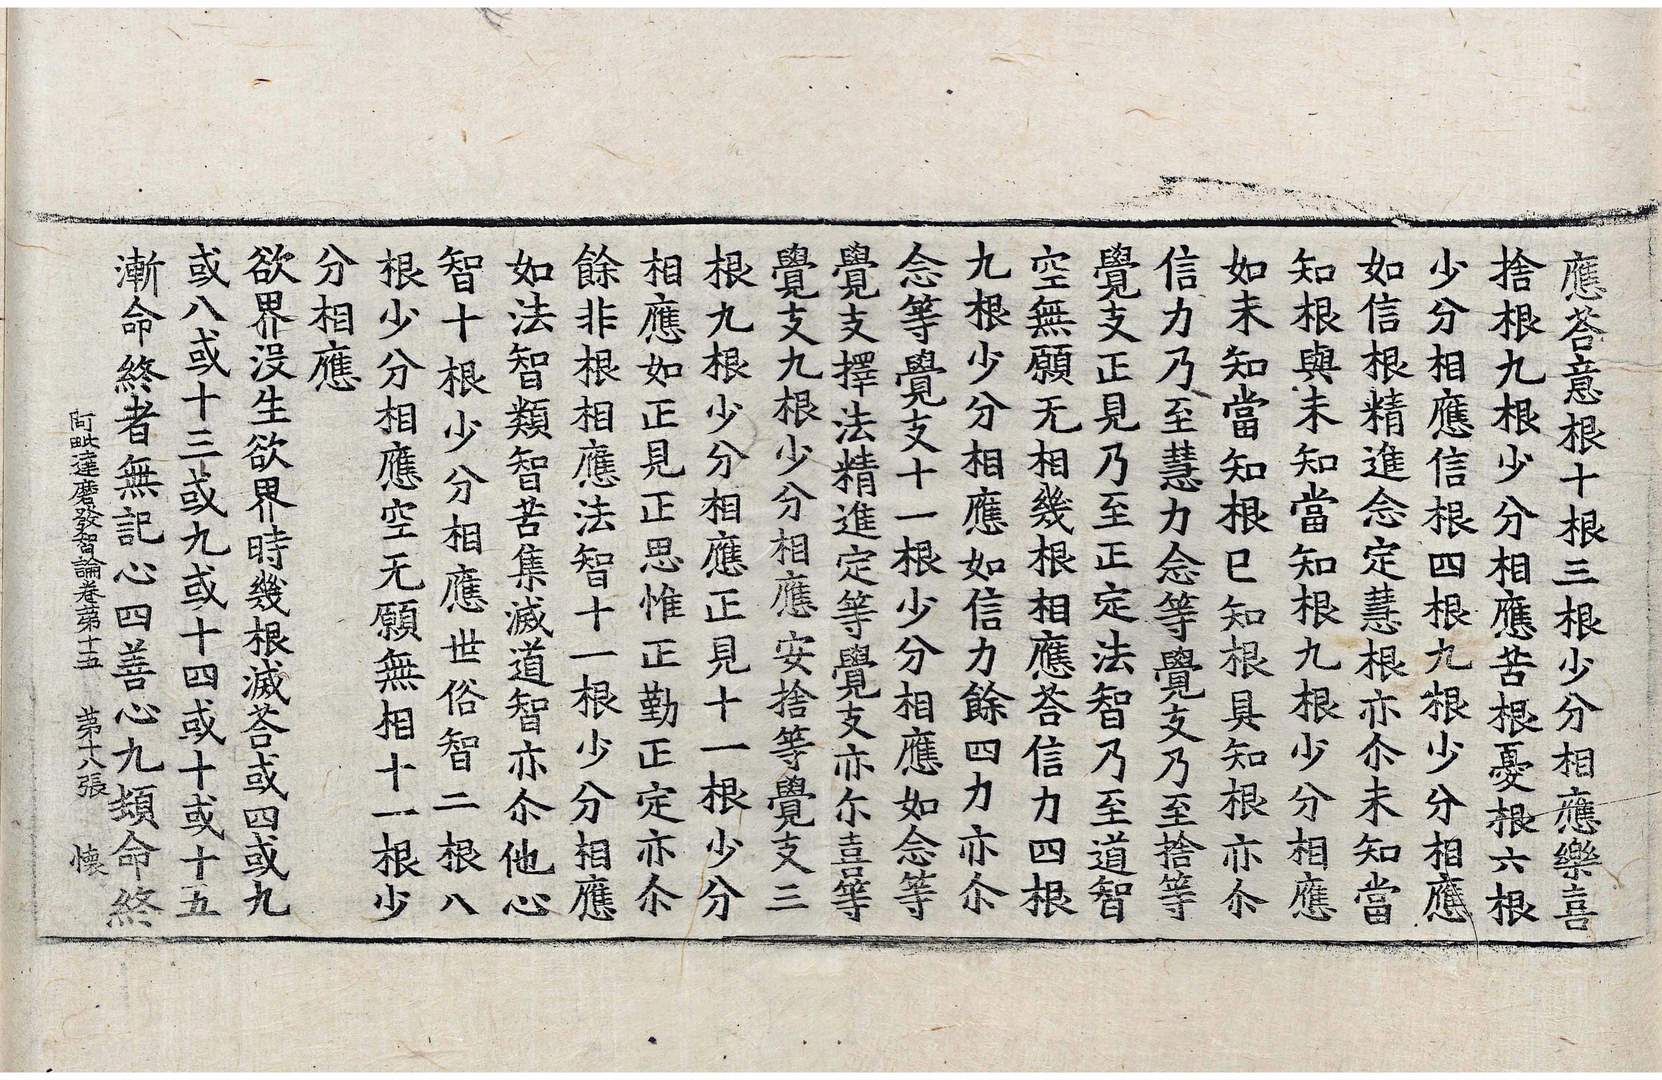 應荅意根十根三根少分相應樂喜
捨根九根少分相應苦根憂根六根
少分相應信根四根九根少分相應
如信根精進念定慧根亦尒未知當
知根與未知當知根九根少分相應
如未知當知根已知根具知根亦尒
信力乃至慧力念等覺支乃至捨等
覺支正見乃至正定法智乃至道智
空無願无相幾根相應荅信力四根
九根少分相應如信力餘四力亦尒
念等覺支十一根少分相應如念等
覺支擇法精進定等覺支亦尒喜等
覺支九根少分相應安捨等覺支三
根九根少分相應正見十一根少分
相應如正見正思惟正勤正定亦尒
餘非根相應法智十一根少分相應
如法智類智苦集滅道智亦尒他心
智十根少分相應世俗智二根八
根少分相應空无願無相十一根少
分相應
欲界没生欲界時幾根滅荅或四或九
或八或十三或九或十四或十或十五
漸命終者無記心四善心九頓命終
阿毗達磨發智論卷第十五 第十八張 懷